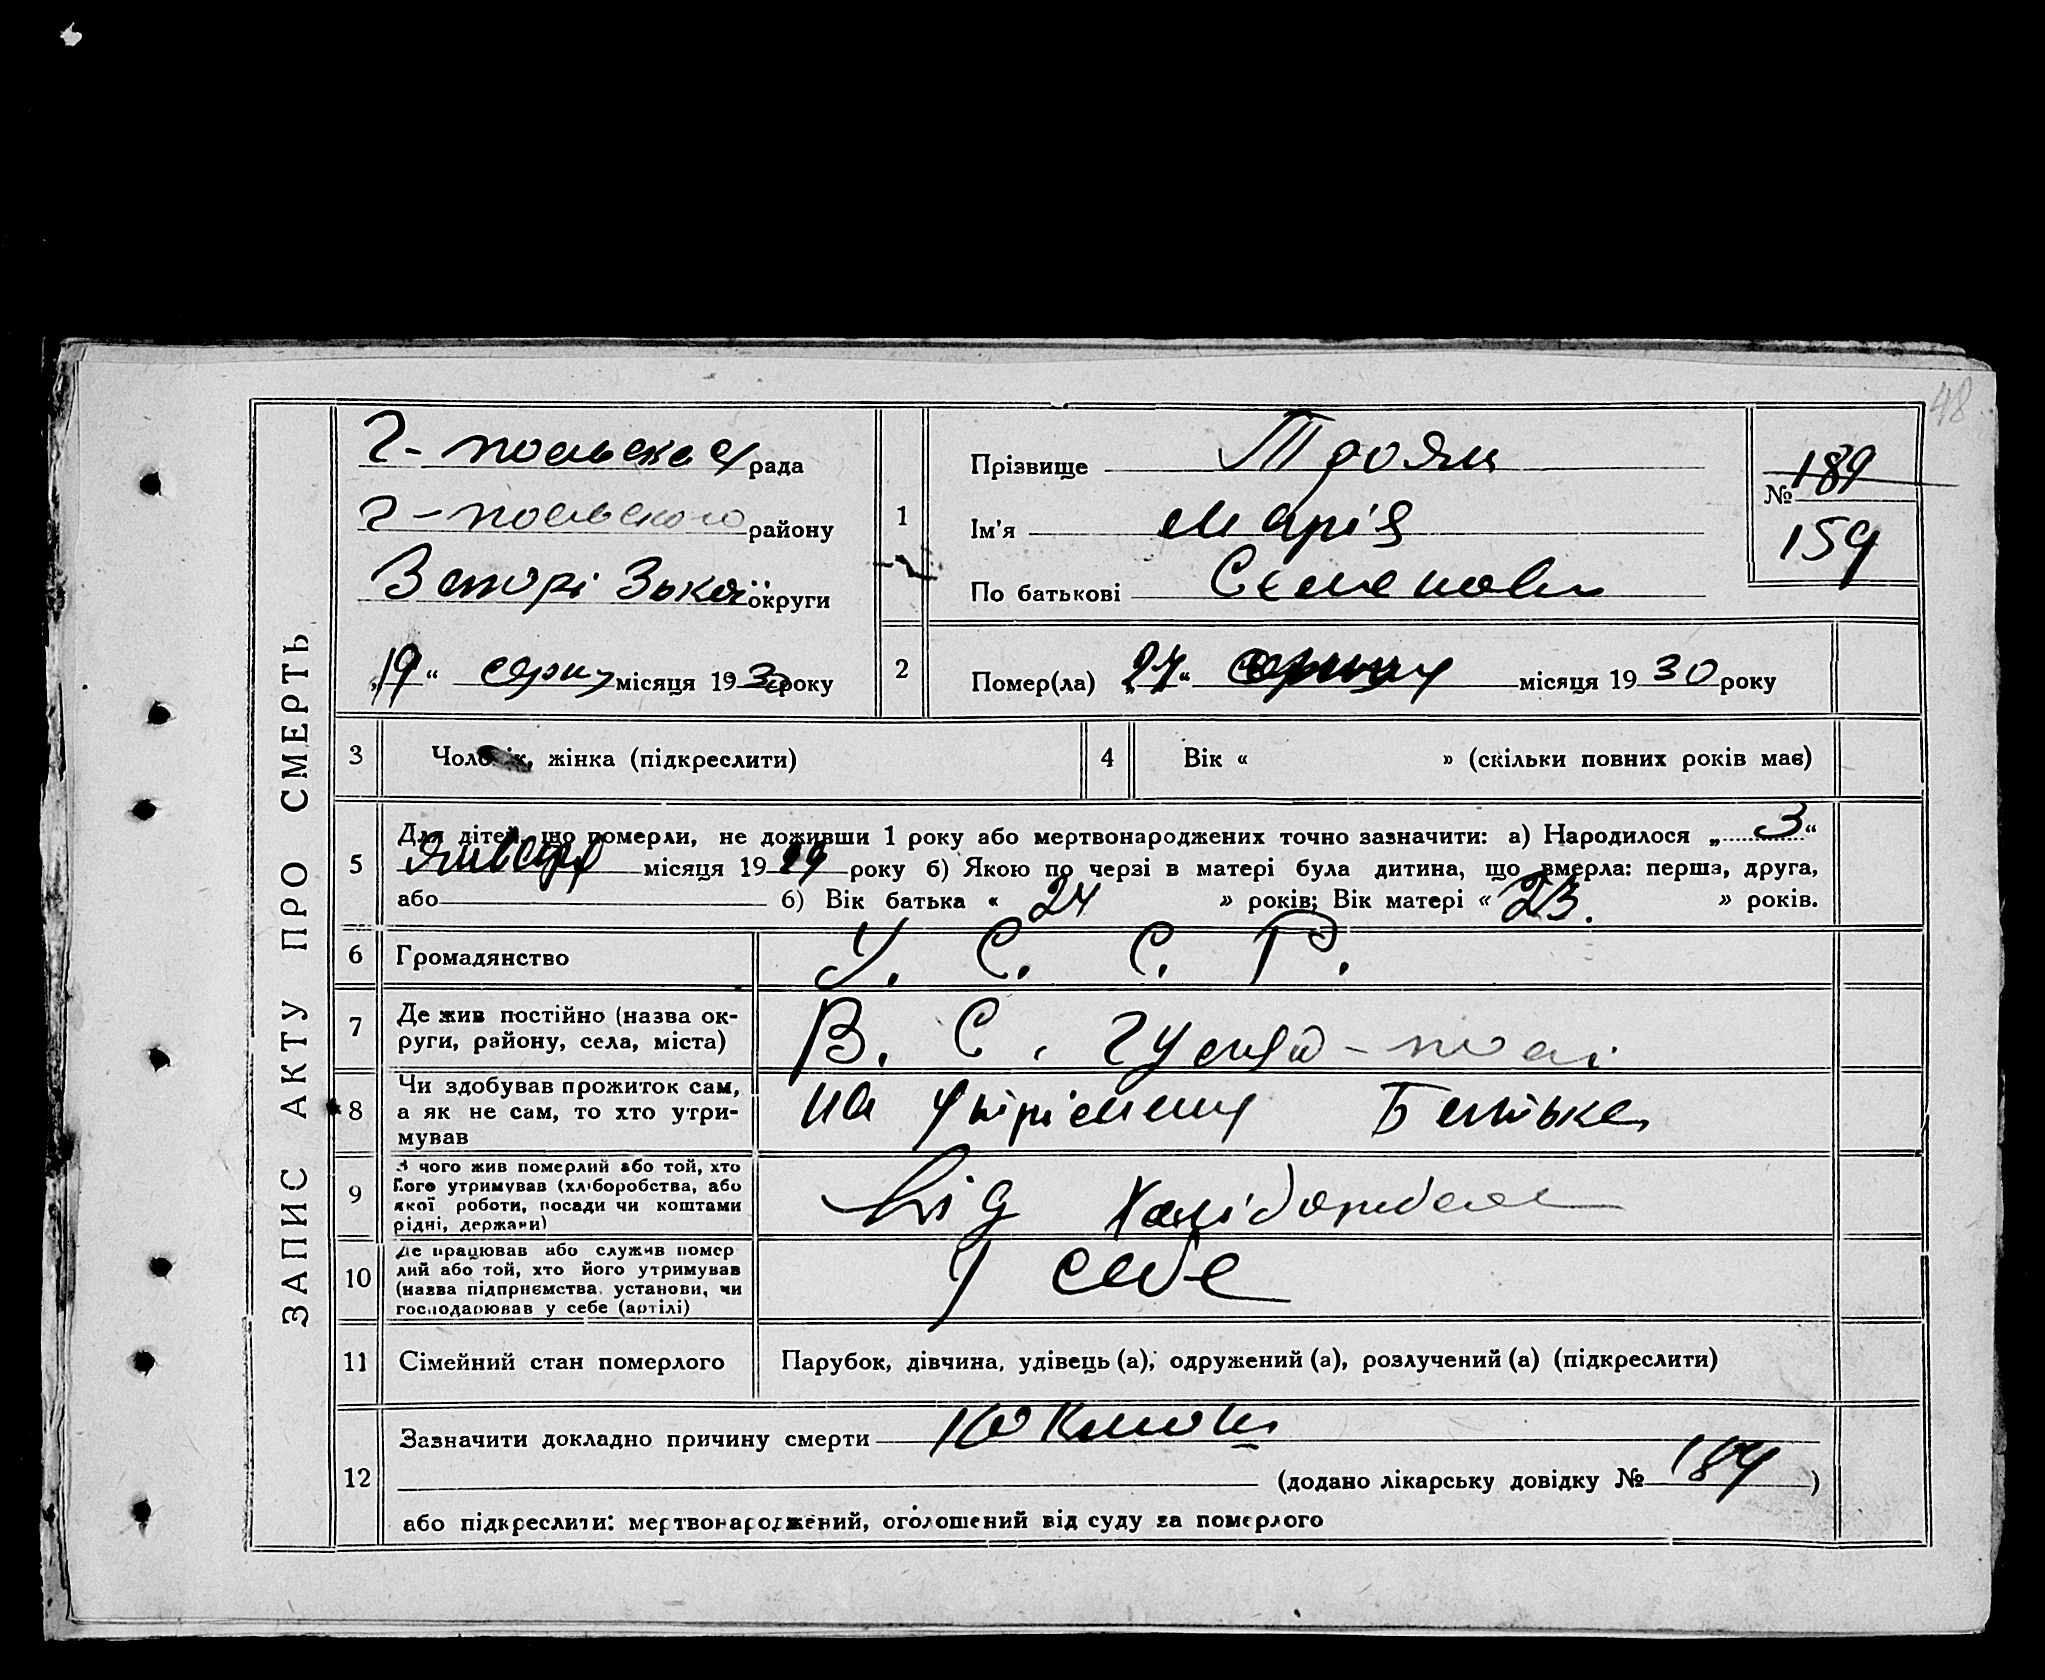 48
ЗАПИС АКТУ ПРО СМЕРТЬ
Г-польська рада
Г-польского району
Запорізької округи
„19“ серпня місяця 1930 року
1
Прізвище Троян
Ім'я Марія
По батькові Семеновн
№ 189
159
2
Помер(ла) „27“ місяця 1930 року
3
Чоловік, жінка (підкреслити)
4
Вік « » (скільки повних років має)
5
Для дітей, що померли, не доживши 1 року або мертвонароджених точно зазначити: а) Народилося „3“
Январр місяця 1929 року б) Якою по черзі в матері була дитина, що вмерла: перша, друга,
або б) Вік батька « 24 » років; Вік матері « 23. » років.
6
Громадянство
У. С. С. Р.
7
Де жив постійно (назва ок-
руги, району, села, міста)
В. С. Гуляй-полі
8
Чи здобував прожиток сам,
а як не сам, то хто утри-
мував
на утріманні Батька
9
З чого жив померлий або той, хто
його утримував (хліборобства, або
якої роботи, посади чи коштами
рідні, держави)
Від
10
Де працював або служив помер
лий або той, хто його утримував
(назва підприємства, установи, чи
господарював у себе (артілі)
У себе
11
Сімейний стан померлого
Парубок, дівчина, удівець (а); одружений (а), розлучений (а) (підкреслити)
12
Зазначити докладно причину смерти Коклюш
(додано лікарську довідку № 189 )
або підкреслити: мертвонароджений, оголошений від суду за померлого